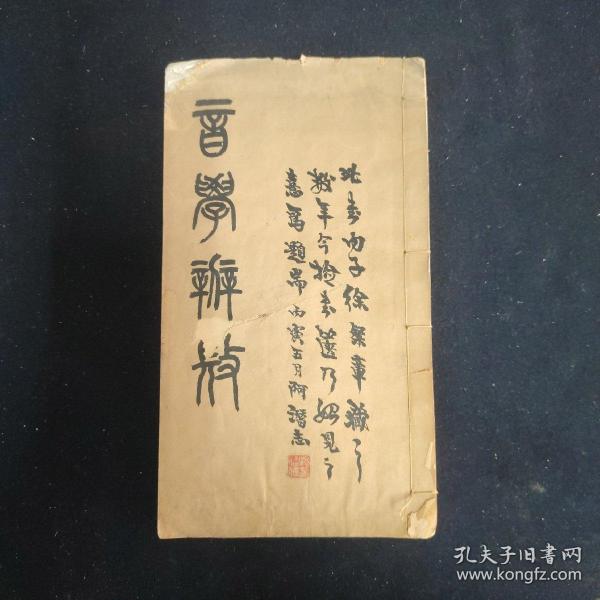 音學辨微
此書內子徐無章藏之
數年今撿書篋乃始見之
意寫題耑丙寅五月阿潛志
孔夫子旧书网
www.kongfz.com